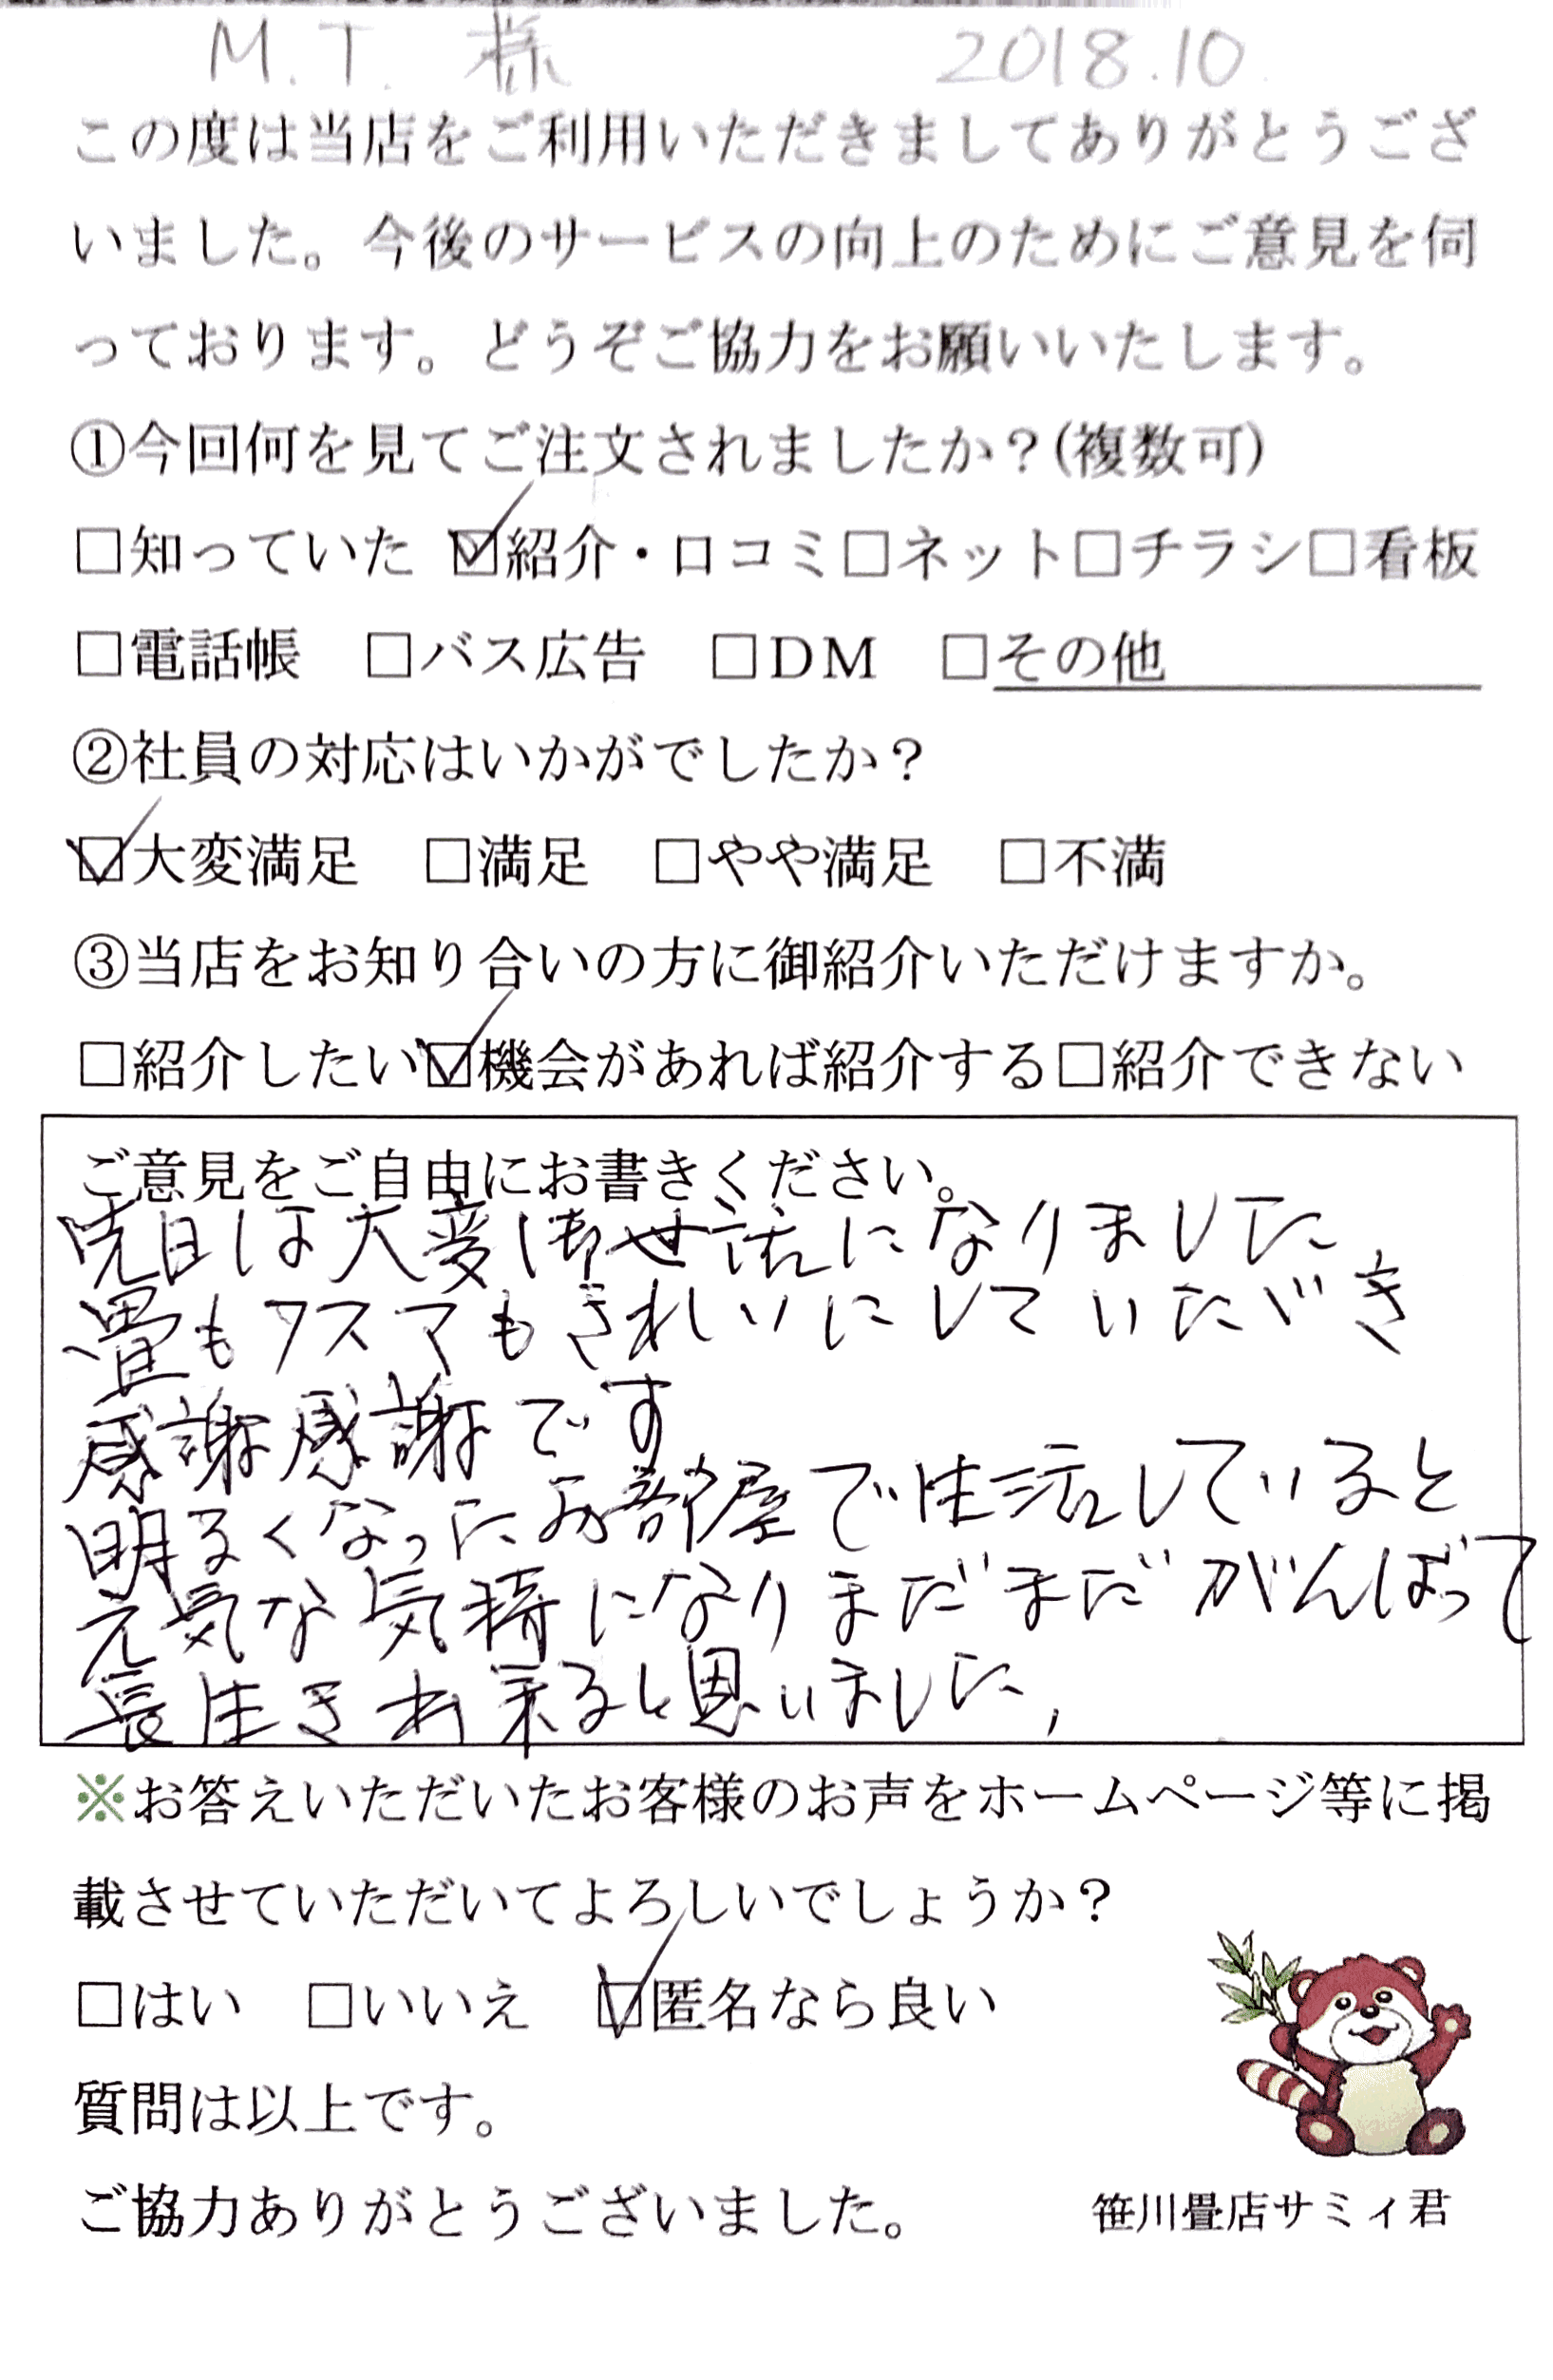 M.T. 様 2018.10
この度は当店をご利用いただきましてありがとうござ
いました。今後のサービスの向上のためにご意見を伺
っております。どうぞご協力をお願いいたします。
①今回何を見てご注文されましたか？(複数可)
□知っていた ☑紹介・口コミ□ネット□チラシ□看板
□電話帳 □バス広告 □DM □その他
②社員の対応はいかがでしたか？
☑大変満足 □満足 □やや満足 □不満
③当店をお知り合いの方に御紹介いただけますか。
□紹介したい☑機会があれば紹介する□紹介できない
ご意見をご自由にお書きください。
先日は大変御世話になりました、
畳もフスマもきれいにしていただき
感謝感謝です
明るくなったお部屋で生活していると
元気な気持になりまだまだがんばって
長生き出来ると思いました、
※お答えいただいたお客様のお声をホームページ等に掲
載させていただいてよろしいでしょうか？
□はい □いいえ ☑匿名なら良い
質問は以上です。
ご協力ありがとうございました。
笹川畳店サミィ君